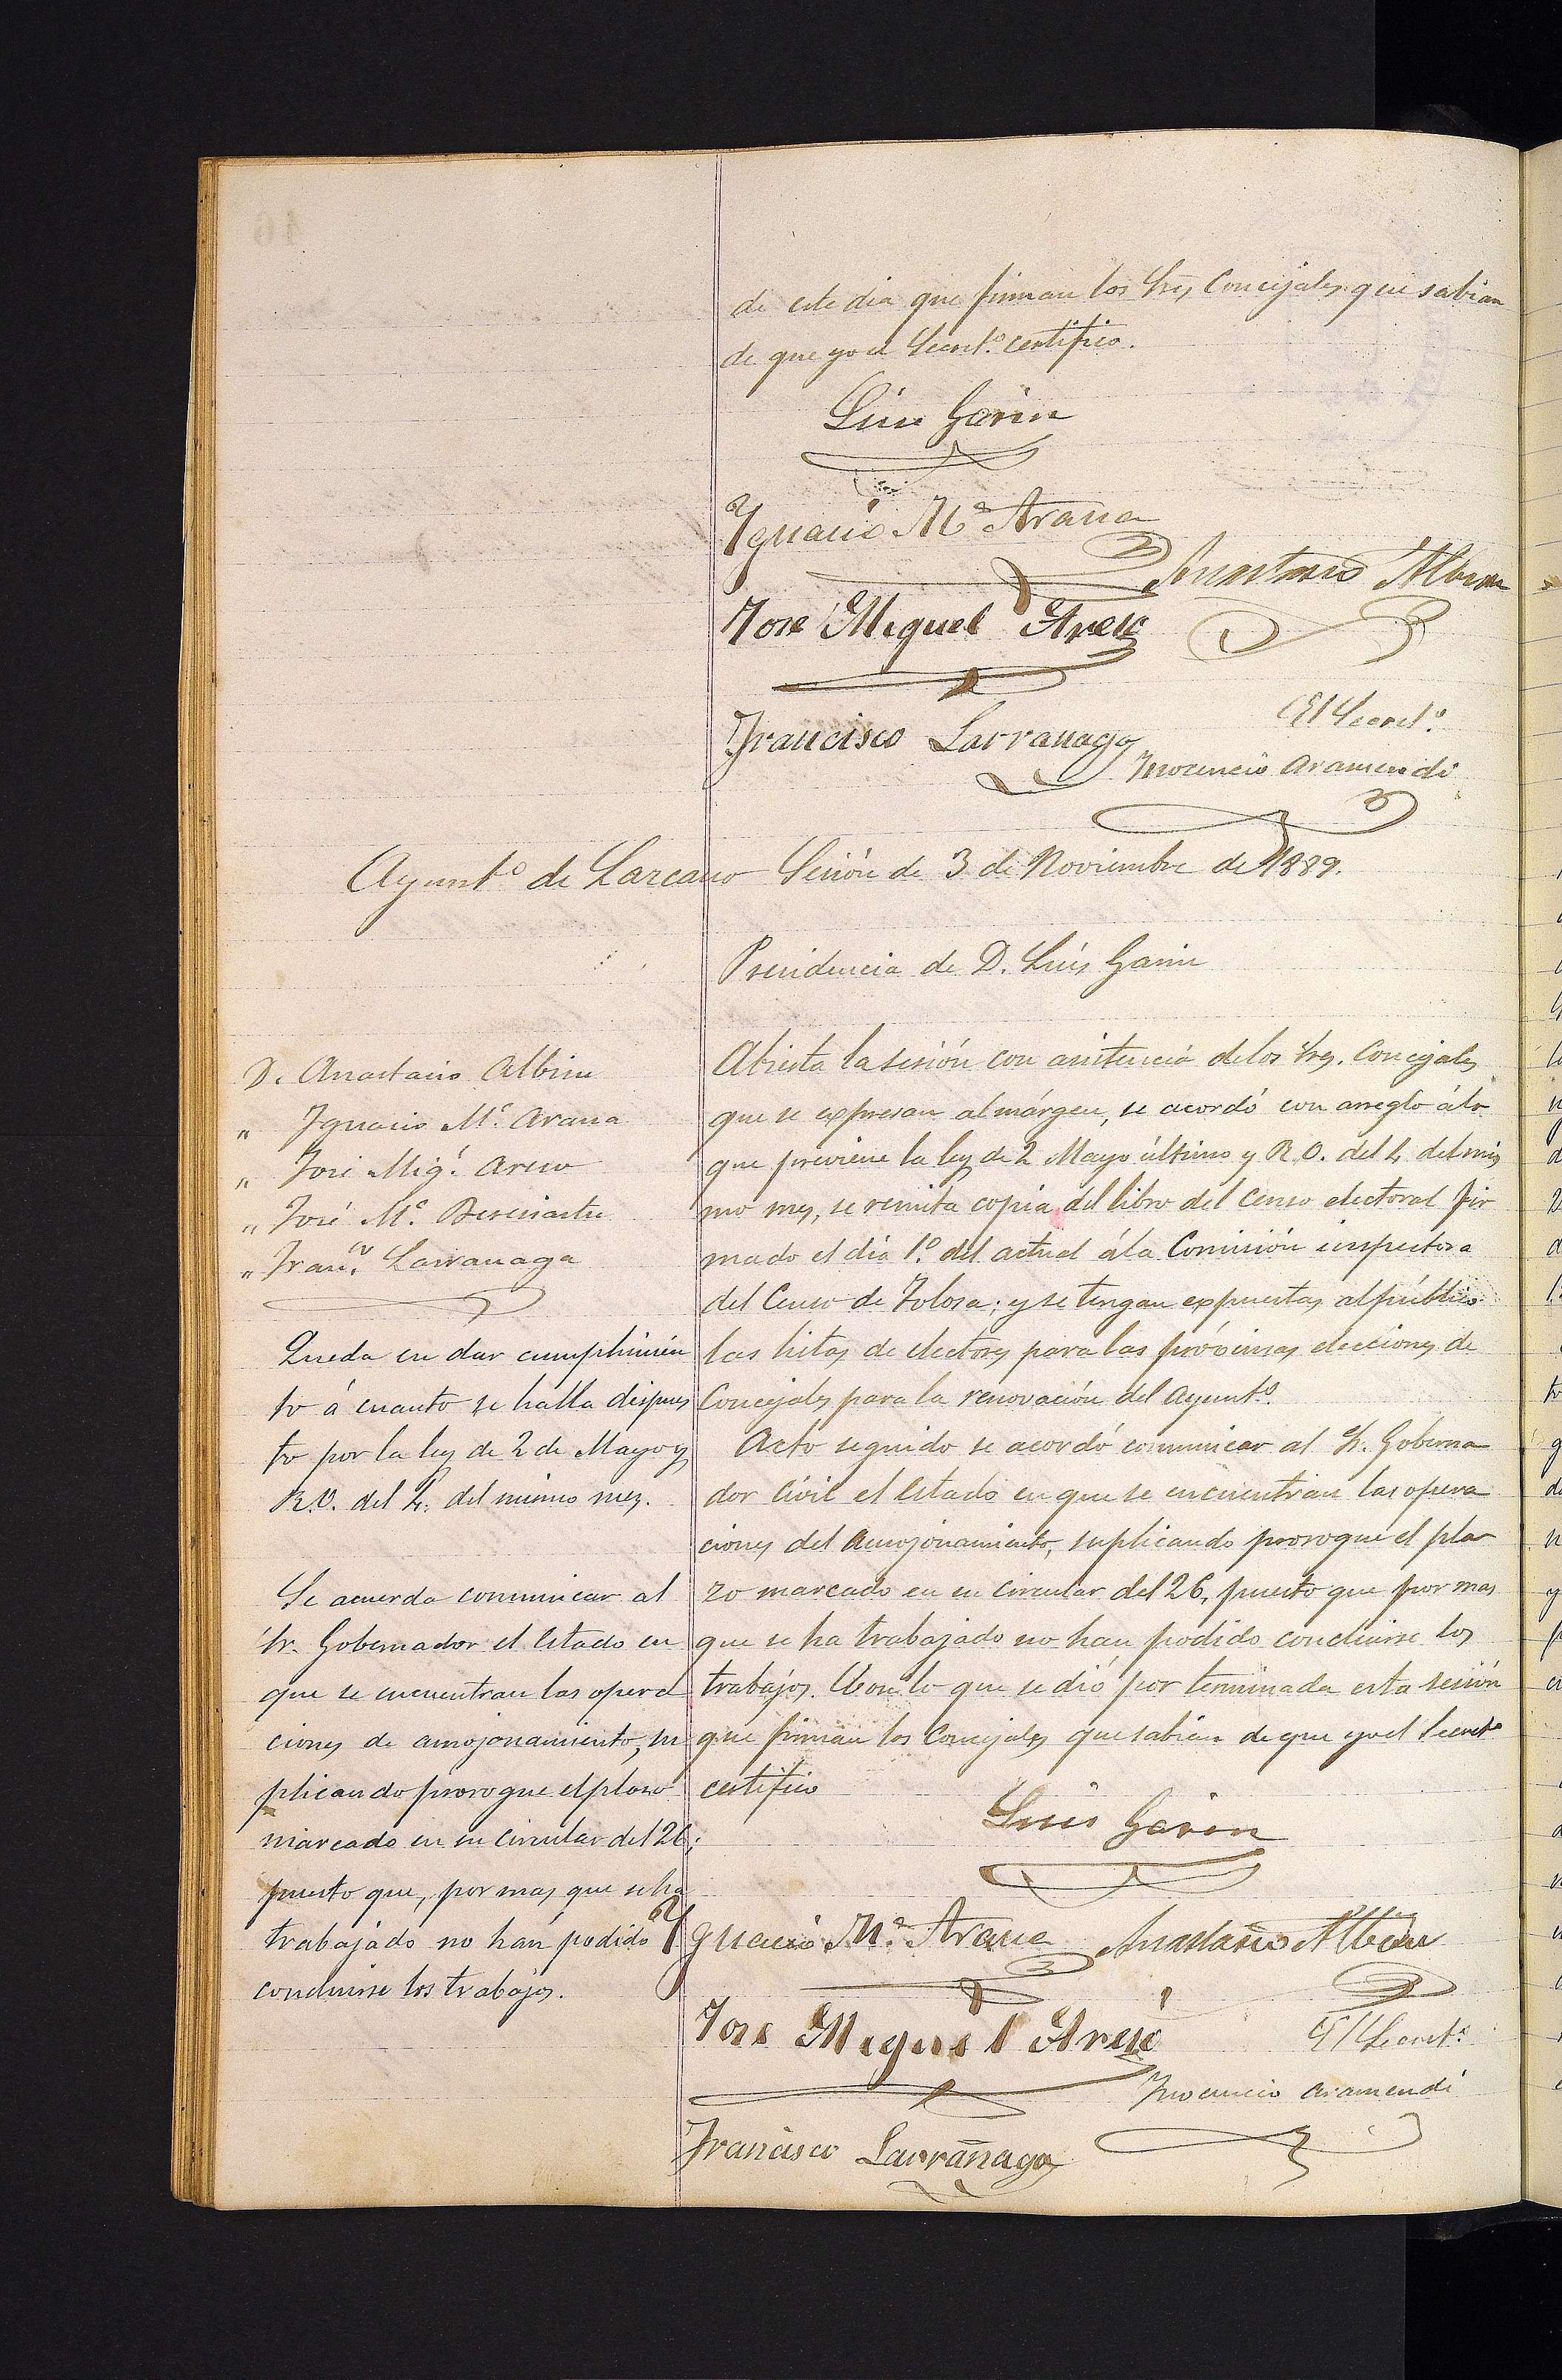 de este dia que firman los Sres Concejales que sabian
de que yo el Secret.º certifico.
Luis Garin
Ygnacio M.ª Arana
Anastasio Albisu
Jose Miguel Areso
El Secret.º
Francisco Larranaga
Inocencio Aramendi
Ayunt.º de Lazcano Sesión de 3 de Noviembre de 1889.
Presidencia de D. Luis Garin
D. Anastasio Albisu
" Ignacio M.ª Arana
" José Mig.l Areso
" José M.ª Beresiartu
" Fran.co Larranaga
Queda en dar cumplimien
to á cuanto se halla dispues
to por la ley de 2 de Mayo y
R.O. del 4. del mismo mes.
Se acuerda comunicar al
Sr. Gobernador el Estado en
que se encuentran las opera
ciones de amojonamiento, su
plicando prorogue el plazo
marcado en su circular del 26;
puesto que, por mas que se ha
trabajado no han podido
concluirse los trabajos.
Abierta la sesión con asistencia de los Sres. Concejales
que se expresan al márgen, se acordó con arreglo á lo
que previene la ley de 2 Mayo último y R.O. del 4 del mis
mo mes, se remita copia del libro del Censo electoral fir
mado el día 1.º del actual á la Comisión inspectora
del Censo de Tolosa; y se tengan expuestas al público
las listas de electores para las próximas elecciones de
Concejales para la renovación del Ayunt.º.
Acto seguido se acordó comunicar al Sr. Goberna
dor Civil el Estado en que se encuentran las opera
ciones del Amojonamiento, suplicando prorogue el pla
zo marcado en su circular del 26, puesto que por mas
que se ha trabajado no han podido concluirse los
trabajos. Con lo que se dió por terminada esta sesión
que firman los Concejales que sabian de que yo el Secret.º
certifico
Luis Garin
Ygnacio M.ª Arana Anastasio Albisu
Jose Miguel Areso
El Secret.º
Inocencio Aramendi
Francisco Larrañaga